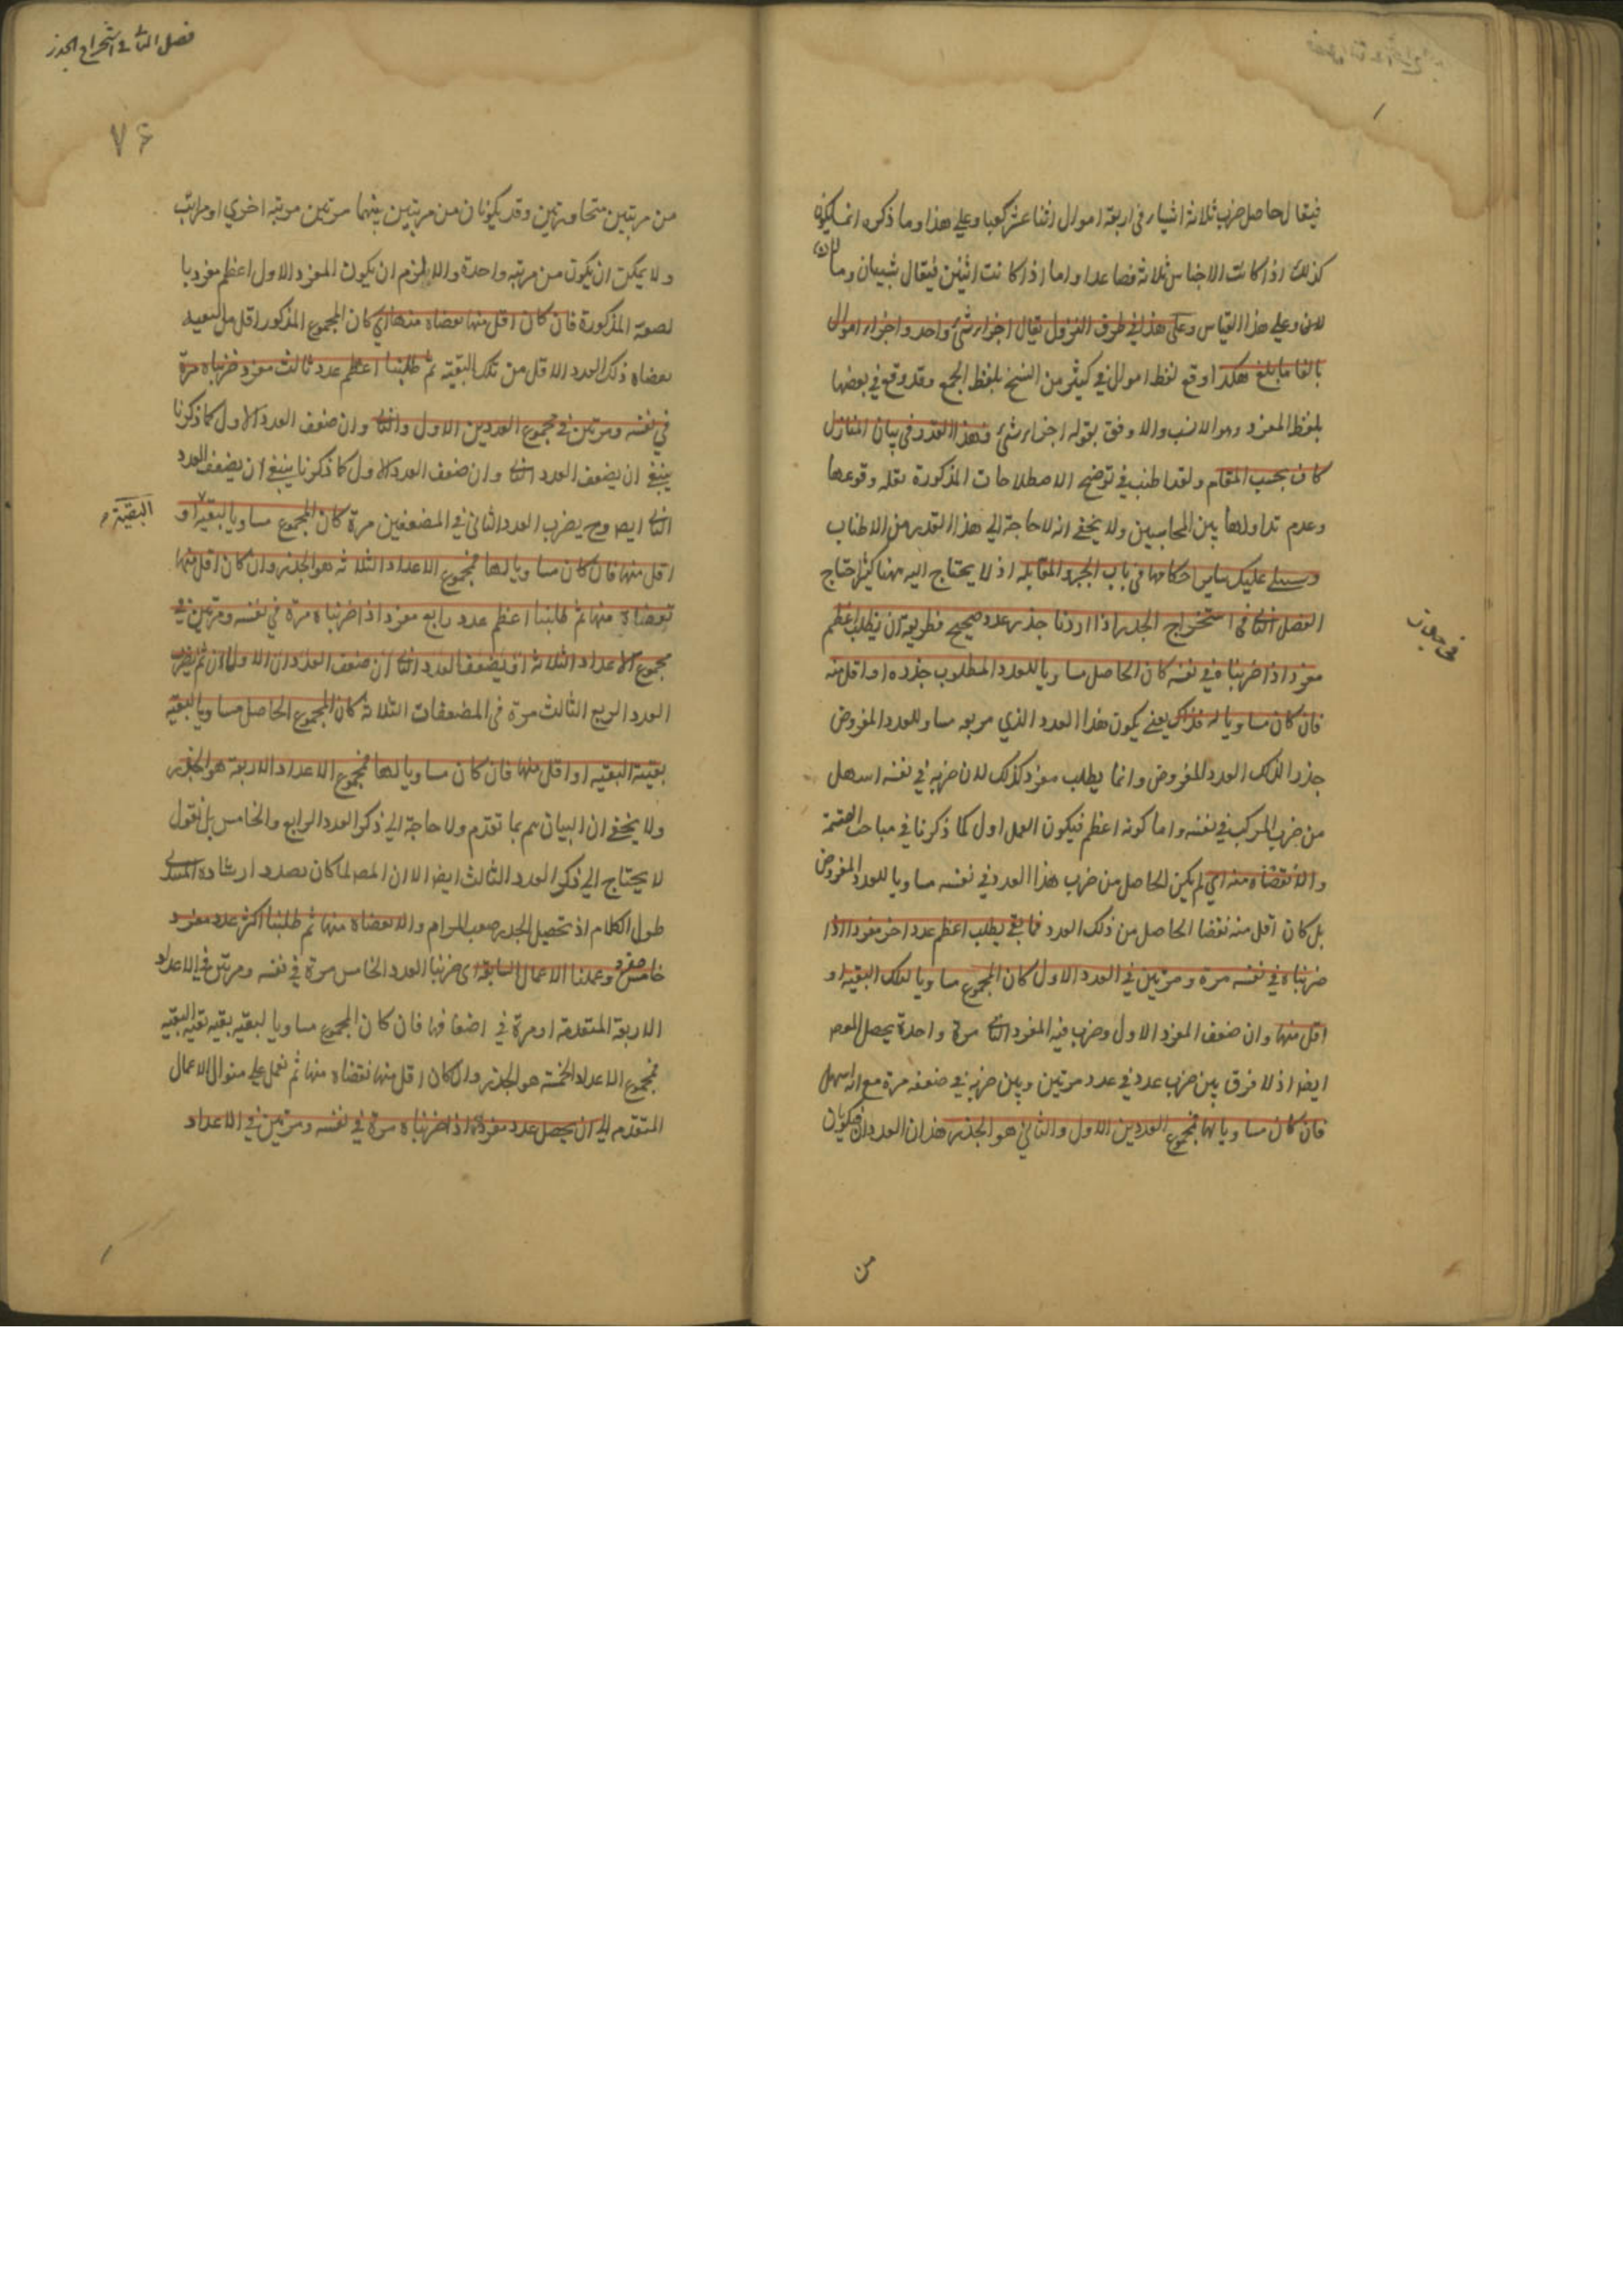 فيقال حاصل ضرب ثلاثة اشياء في اربعة اموال اثنا عشر كعبا وعلى هذا وما ذكره انما يكون
كذلك اذا كانت الاجناس ثلاثة فصاعدا واما اذا كانت اثنين فيقال شيئان ومالان
لان وعلى هذا القياس وعلى هذا في طرف النزول يقال اجزاء شئ واحد واجزاء اموال
بالغا ما بلغ هكذا وقع لفظ اموال في كثير من النسخ بلفظ الجمع وقد وقع في بعضها
بلفظ المفرد وهو الانسب والاوفق بقوله اجزاء شئ فهذا القدر في بيان المنازل
كاف بحسب المقام ولقد اطنب في توضيح الاصطلاحات المذكورة لقلة وقوعها
وعدم تداولها بين المحاسبين ولا يخفى انه لا حاجة الى هذا القدر من الاطناب
وسيتلى عليك ساير احكامها في باب الجبر والمقابلة اذ لا يحتاج اليه ههنا كثير احتياج
الفصل الثاني في استخراج الجذر اذا اردنا جذر عدد صحيح فطريقه ان يطلب اعظم
مفرد اذا ضربناه في نفسه كان الحاصل مساويا للعدد المطلوب جذره او اقل منه
فان كان مساويا له فذاك يعني يكون هذا العدد الذي مربعه مساو للعدد المفروض
جذر الذلك العدد المفروض وانما يطلب مفرد كذلك لان ضربه في نفسه اسهل
من ضرب المركب في نفسه واما كونه اعظم فيكون العمل اول كما ذكرنا في مباحث القسمة
والا نقصناه منه اي لم يكن الحاصل من ضرب هذا العدد في نفسه مساويا للعدد المفروض
بل كان اقل منه نقصنا الحاصل من ذلك العدد فما بقي يطلب اعظم عدد اخر مفرد اذا
ضربناه في نفسه مرة ومرتين في العدد الاول كان المجموع مساويا لتلك البقية او
اقل منها وان ضعف المفرد الاول وضرب فيه المفرد الثاني مرة واحدة يحصل المص
ايضا اذ لا فرق بين ضرب عدد في عدد مرتين وبين ضربه في ضعفه مرة مع انه اسهل
فان كان مساويا لها فمجموع العددين الاول والثاني هو الجذر هذان العددان قد يكونان
من
فصل الثاني في استخراج الجذر
٧٦
من مرتبتين متجاورتين وقد يكونان من مرتبتين بينهما مرتبة اخرى او مراتب
ولا يمكن ان يكون من مرتبة واحدة والا يلزم ان يكون المفرد الاول اعظم مفرد با
لصفة المذكورة فان كان اقل منها نقصناه منها اي كان المجموع المذكور اقل من البقية
نقصناه ذلك العدد الاقل من تلك البقية ثم طلبنا اعظم عدد ثالث مفرد ضربناه مرة
في نفسه ومرتين في مجموع العددين الاول والثاني وان ضعف العدد الاول كما ذكرنا
ينبغي ان يضعف العدد الثاني وان ضعف العدد الاول كما ذكرنا ينبغي ان يضعف العدد
الثاني ايض وح يضرب العدد الثاني في المضعفين مرة كان المجموع مساويا لبقية او
البقية
اقل منها فان كان مساويا لها فمجموع الاعداد الثلاثة هو الجذر وان كان اقل منها
نقصناه منها ثم طلبنا اعظم عدد رابع مفرد اذا ضربناه مرة في نفسه ومرتين في
مجموع الاعداد الثلاثة او يضعف العدد الثالث ان ضعف العددان الاولان ثم يضرب
العدد الربع الثالث مرة في المضعفات الثلاثة كان المجموع الحاصل مساويا لبقية
بقية البقية او اقل منها فان كان مساويا لها فمجموع الاعداد الاربعة هو الجذر
ولا يخفى ان البيان تم بما تقدم ولا حاجة الى ذكر العدد الرابع والخامس بل نقول
لا يحتاج الى ذكر العدد الثالث ايضا الا ان المص لما كان بصدد ارشاد المبتدي
طول الكلام اذ تحصيل الجذر صعب المرام والا نقصناه منها ثم طلبنا اكثر عدد مفرد
خامس وعملنا الاعمال السابقة اي ضربنا العدد الخامس مرة في نفسه ومرتين في الاعداد
الاربعة المتقدمة او مرة في اضعافها فان كان المجموع مساويا لبقية بقية بقية البقية
فمجموع الاعداد الخمسة هو الجذر وان كان اقل منها نقصناه منها ثم نعمل على منوال الاعمال
المتقدم الى ان يحصل عدد مفرد اذا ضربناه مرة في نفسه ومرتين في الاعداد